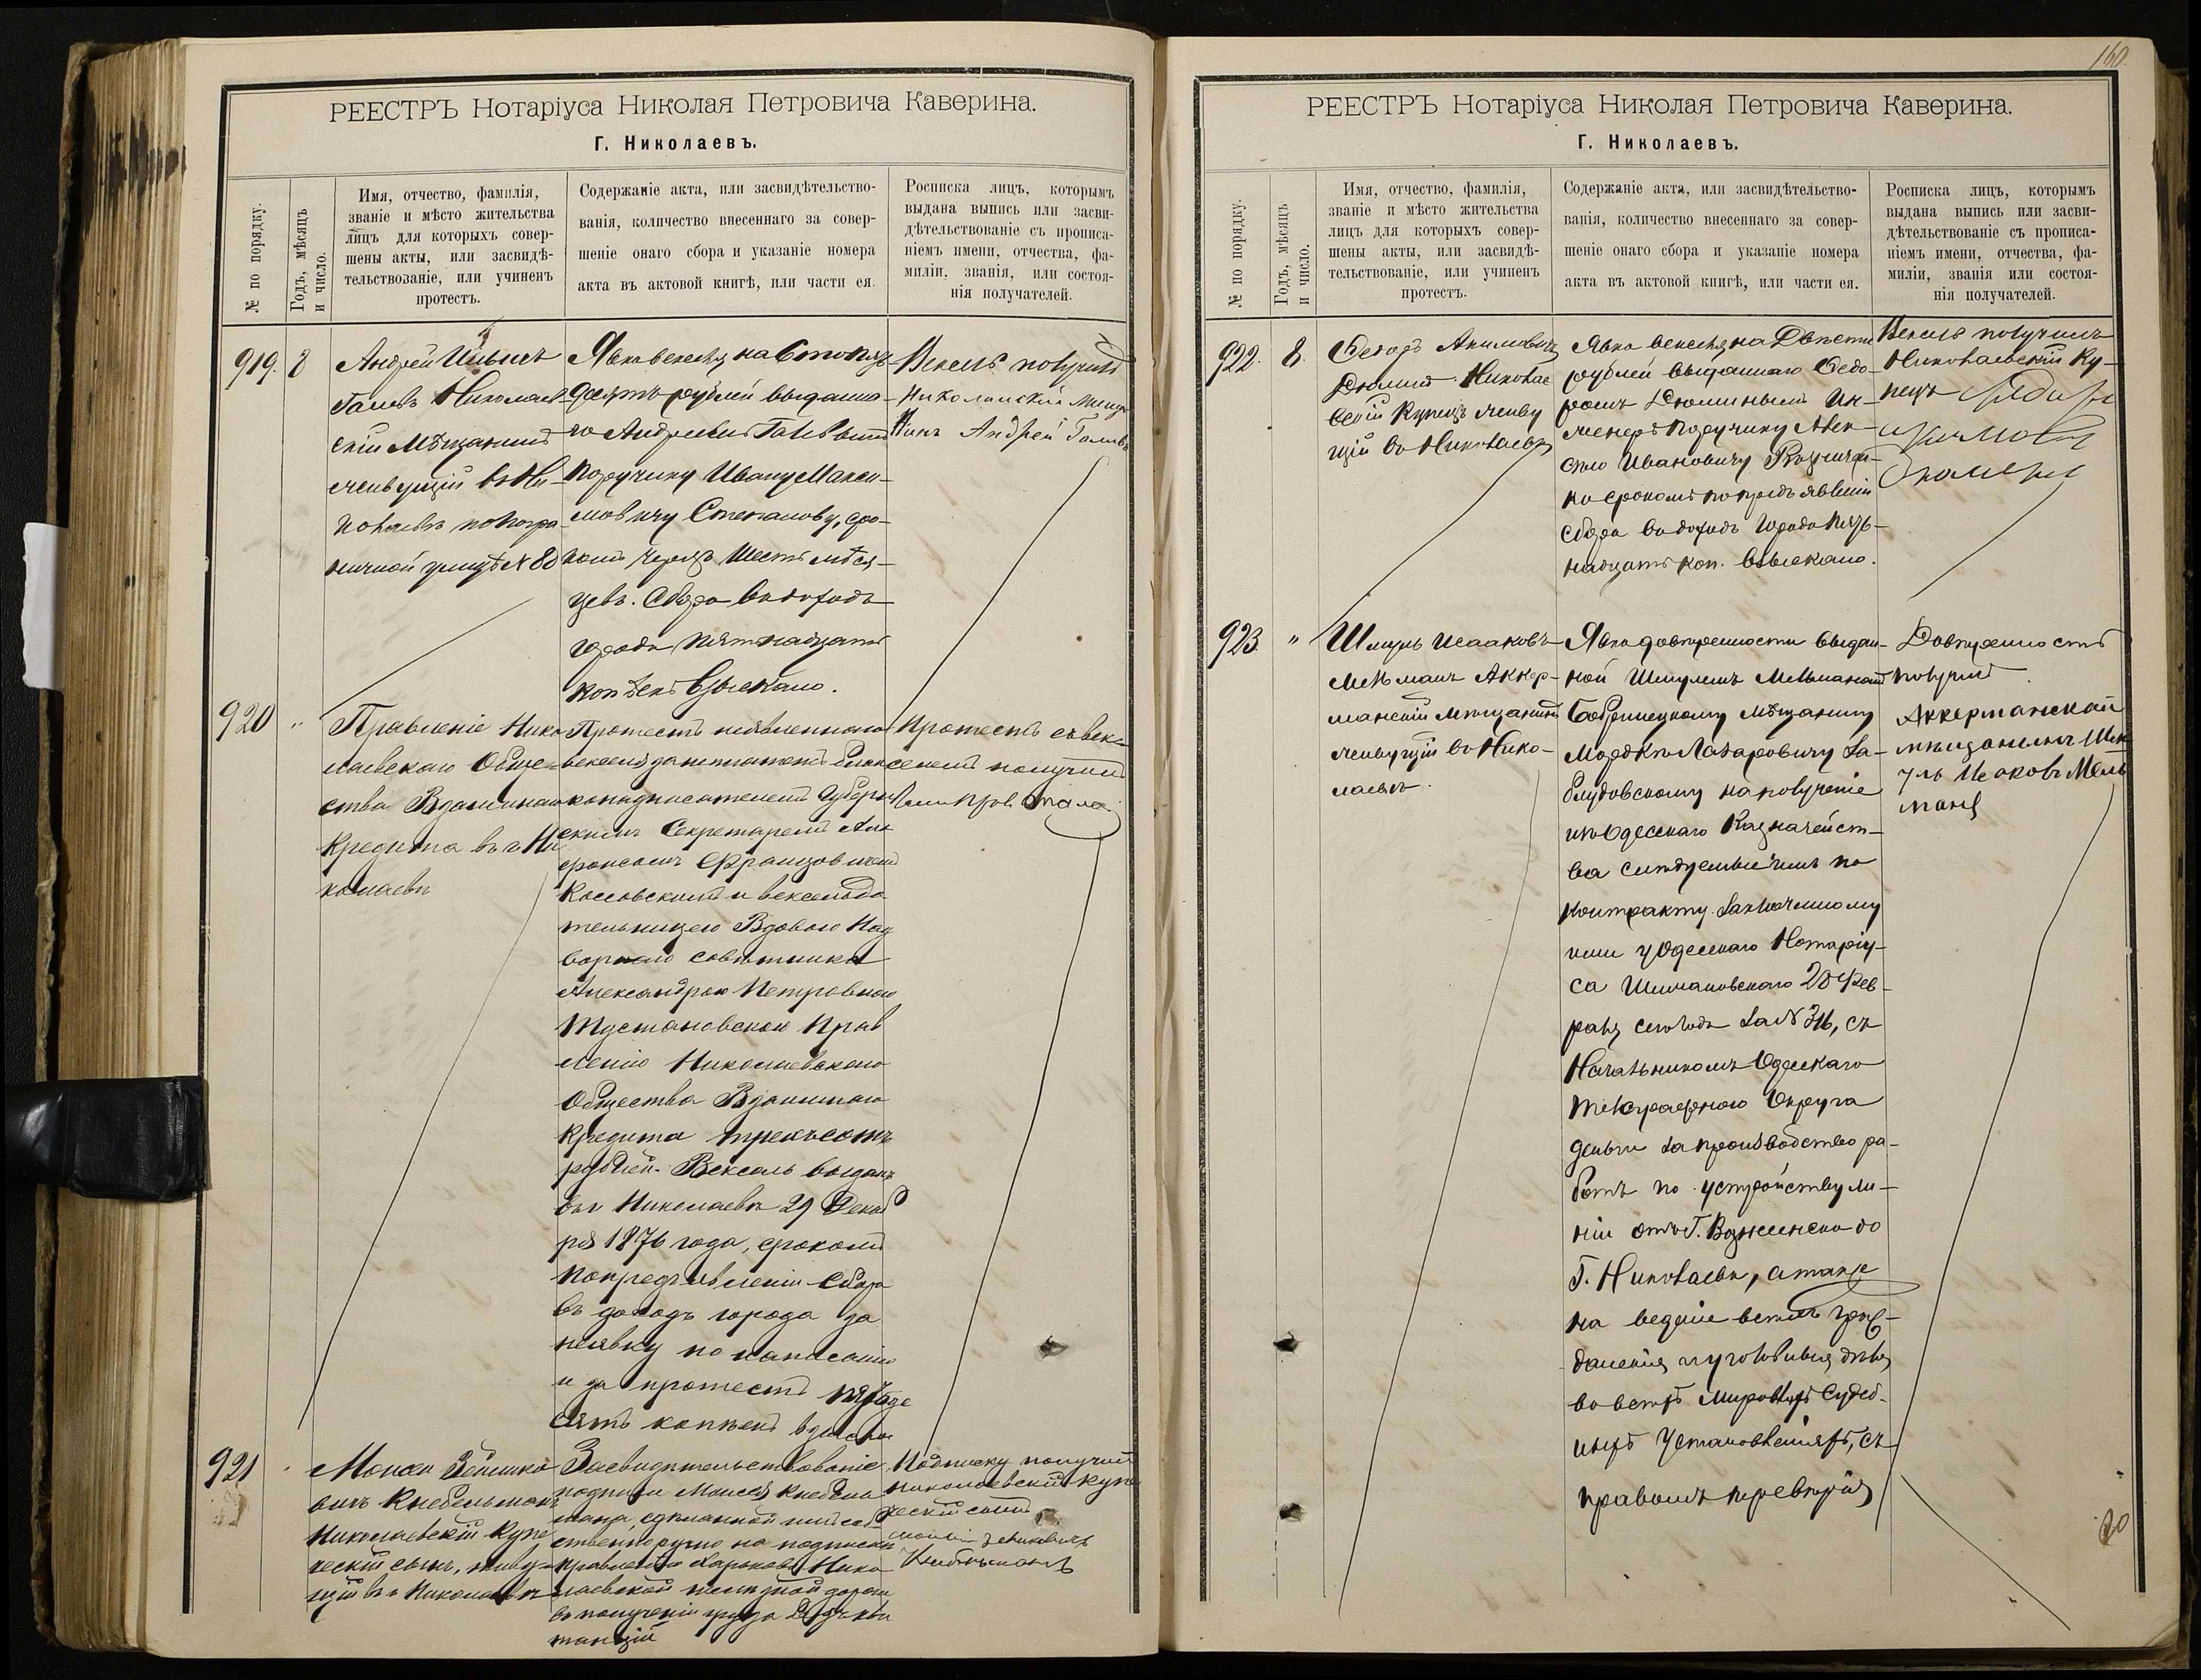 РЕЕСТРЪ Нотаріуса Николая Петровича Каверина.
Г. Николаевъ.
№ по порядку.
Годъ, мѣсяцъ
и число.
Имя, отчество, фамилія,
званіе и мѣсто жительства
лицъ для которыхъ совер-
шены акты, или засвидѣ-
тельствованіе, или учиненъ
протестъ.
Содержаніе акта, или засвидѣтельство-
ванія, количество внесеннаго за совер-
шеніе онаго сбора и указаніе номера
акта въ актовой книгѣ, или части ея.
Росписка лицъ, которымъ
выдана выпись или засви-
дѣтельствованіе съ прописа-
ніемъ имени, отчества, фа-
миліи, званія, или состоя-
нія получателей.
919. 8
Андрей Ильичъ
Галивъ Николаев-
скій Мѣщанинъ
живущій въ Ни-
колаевѣ по Погра-
ничной улицѣ № 80
Явка векселя на Сто пять
десятъ рублей выданна-
го Андреемъ Галивымъ
Поручику Ивану Макси-
мовичу Степанову, сро-
комъ черезъ шесть мѣся-
цевъ. Сбора въ доходъ
города пятнадцать
копѣекъ взыскано.
Вексель получилъ
Николаевскій мѣща
нинъ Андрей Галивъ
920 "
Правленіе Нико
лаевскаго Обще-
ства Взаимнаго
Кредита въ г. Ни
колаевѣ
Протестъ неявленнаго
векселя за неплатежъ бланко
надписателемъ Губерн
скимъ Секретаремъ Аль
фонсомъ Францовичемъ
Коссовскимъ и векселеда
тельницею Вдовою Над
ворнаго совѣтника
Александрою Петровною
Тустановскою Прав
ленію Николаевскаго
Общества Взаимнаго
Кредита трехсотъ
рублей. Вексель выданъ
въ г. Николаевѣ 29 Декаб
ря 1876 года, срокомъ
по предъявленіи. Сбора
въ доходъ города за
неявку по написаніи
и за протестъ пятьде
сятъ копѣекъ взыскано
Протестъ съ век
селемъ получилъ
921
Моисей
вичъ Кнебельманъ
Николаевскій Купе
ческій сынъ, живу-
щій въ г. Николаевѣ
Засвидѣтельствованіе
подписи Моисея Кнебель
мана, сдѣланной имъ соб-
ственноручно на подпискѣ
правленію Харьково-Нико
лаевской желѣзной дороги
въ полученіи груза
танцій
Подписку получилъ
Николаевскій купе
ческій сынъ
Кнебельманъ
160.
РЕЕСТРЪ Нотаріуса Николая Петровича Каверина.
Г. Николаевъ.
№ по порядку.
Годъ, мѣсяцъ
и число.
Имя, отчество, фамилія,
званіе и мѣсто жительства
лицъ для которыхъ совер-
шены акты, или засвидѣ-
тельствованіе, или учиненъ
протестъ.
Содержаніе акта, или засвидѣтельство-
ванія, количество внесеннаго за совер-
шеніе онаго сбора и указаніе номера
акта въ актовой книгѣ, или части ея.
Росписка лицъ, которымъ
выдана выпись или засви-
дѣтельствованіе съ прописа-
ніемъ имени, отчества, фа-
миліи, званія или состоя-
нія получателей.
922. 8.
Федоръ Акимовичъ
Дюминъ Николае
вскій Купецъ живу
щій въ Николаевѣ
Явка векселя на Двѣсти
рублей выданнаго Федо-
ромъ Дюминымъ Ин-
женеръ Поручику Алек-
сѣю Ивановичу
ко срокомъ по предъявленіи
Сбора въ доходъ города пят-
надцать коп. взыскано.
Вексель получилъ
Николаевскій Ку-
пецъ Федоръ
Акимовъ
923. "
Шмуль Исааковъ
Мельманъ Аккер-
манскій мѣщанинъ
живущій въ Нико-
лаевѣ.
Явка довѣренности выдан-
ной Шмулемъ Мельманомъ
Бобринецкому Мѣщанину
Мордкѣ Лазаровичу За-
блудовскому на полученіе
изъ Одесскаго Казначейст-
ва слѣдуемыхъ имъ по
контракту заключенному
ими у Одесскаго Нотаріу-
са Шимановскаго 20 Фев-
раля сего года за № 316, съ
Начальникомъ Одесскаго
Телеграфнаго Округа
деньги за производство ра-
ботъ по устройству ли-
ніи отъ Г. Вознесенска до
Г. Николаева, а также
на веденіе всѣхъ граж-
данскихъ и уголовныхъ дѣлъ
во всѣхъ Мировыхъ Судеб-
ныхъ Установленіяхъ, съ
правомъ передовѣрія
Довѣренность
получилъ
Аккерманскій
мѣщанинъ Шм
уль Исаковъ Мель
манъ